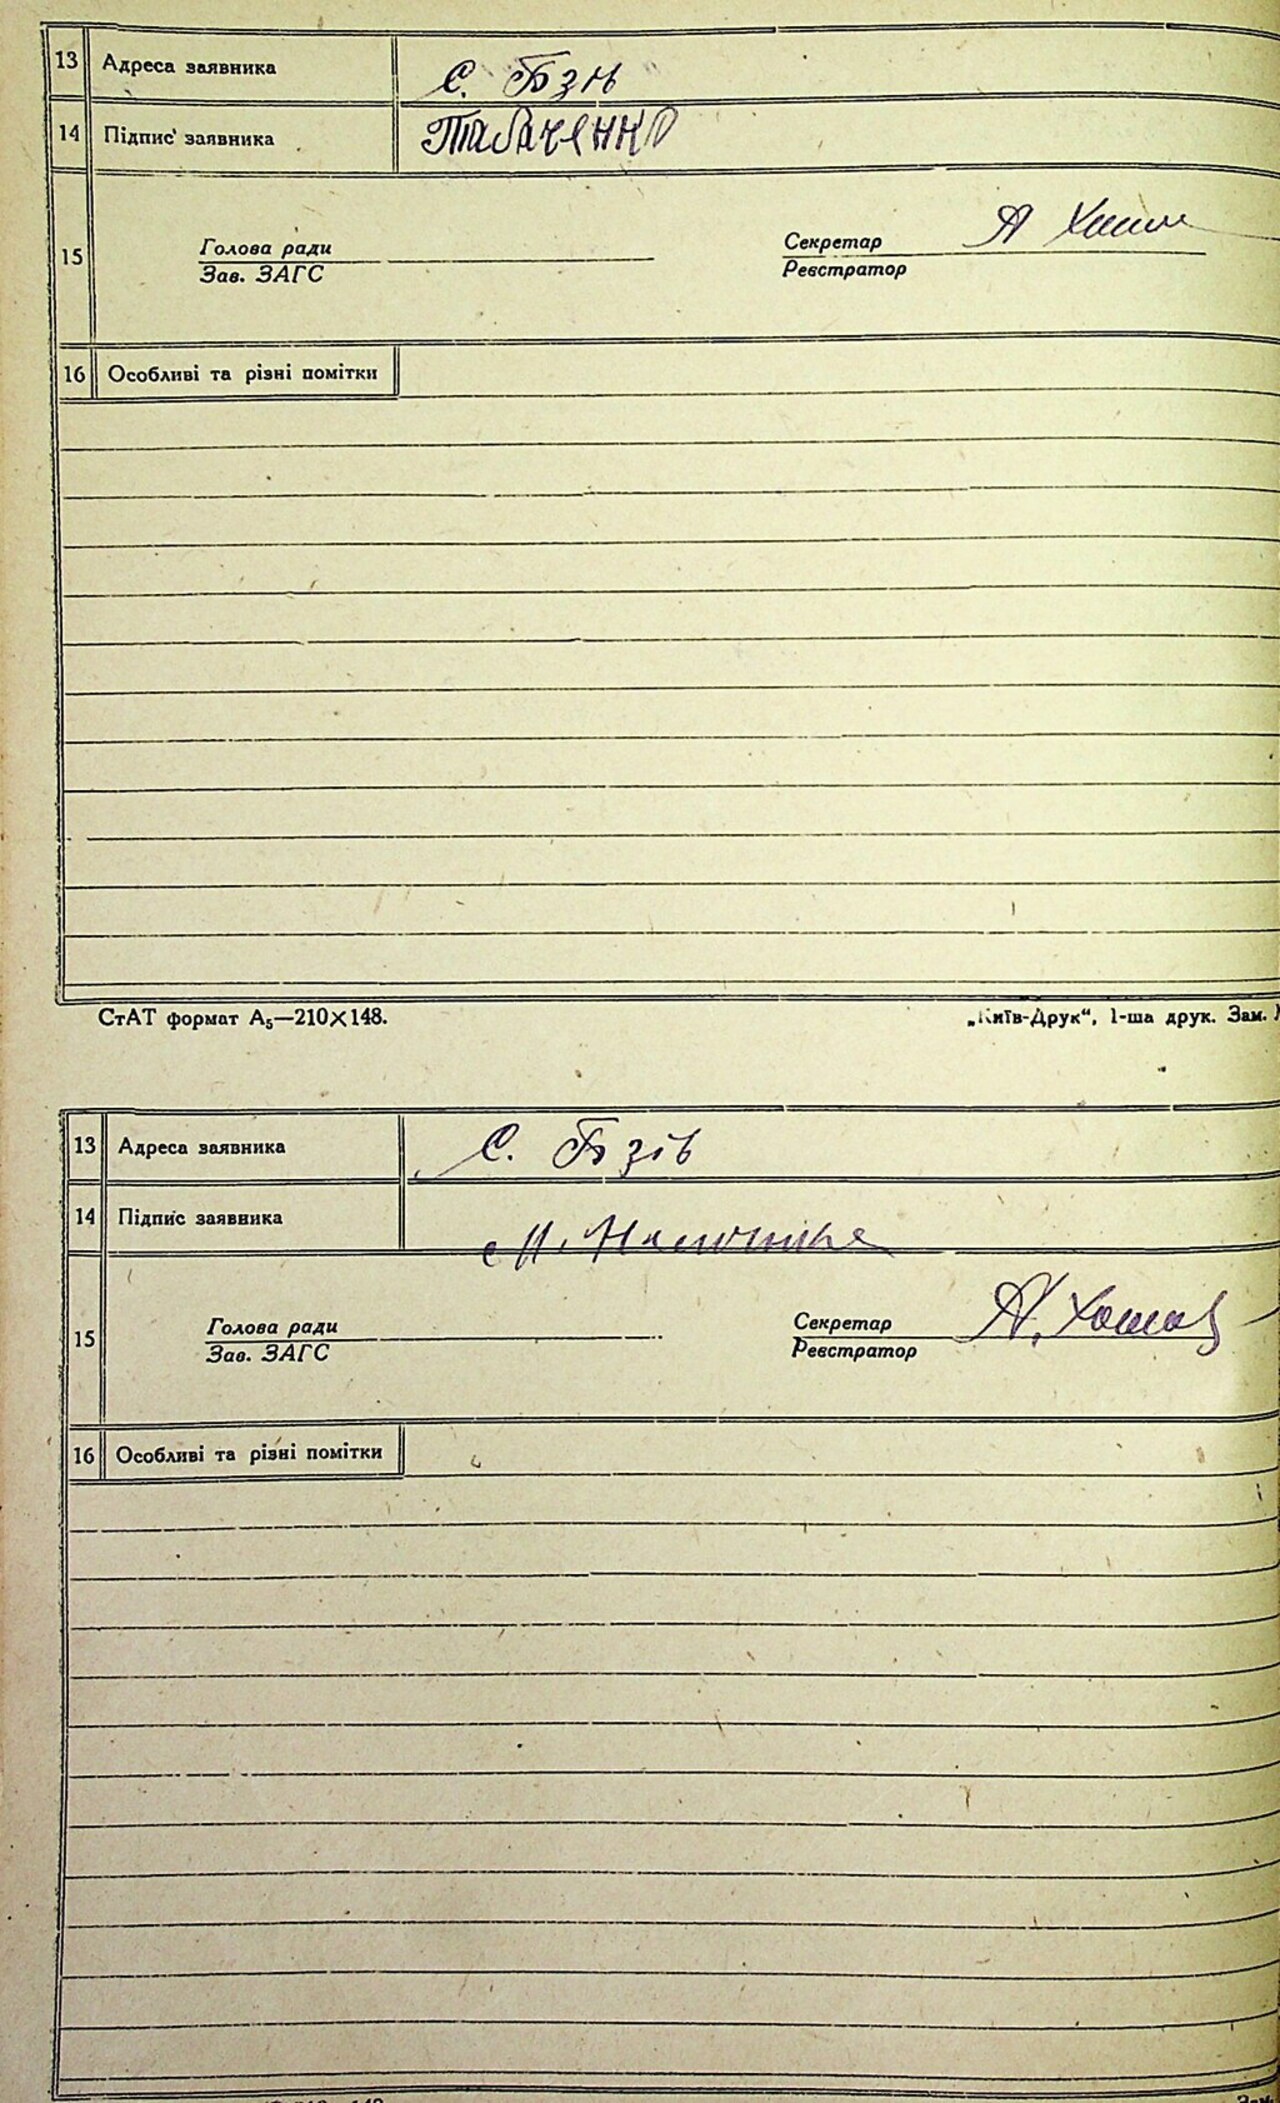 13 Адреса заявника с. Бзів
14 Підпис заявника Табаченко
Голова ради Секретар
15
Зав. ЗАГС Реєстратор
16 Особливі та різні помітки
СтАТ формат А₅—210×148. „Київ-Друк“, 1-ша друк. Зам.
13 Адреса заявника с. Бзів
14 Підпис заявника
Голова ради Секретар
15
Зав. ЗАГС Реєстратор
16 Особливі та різні помітки